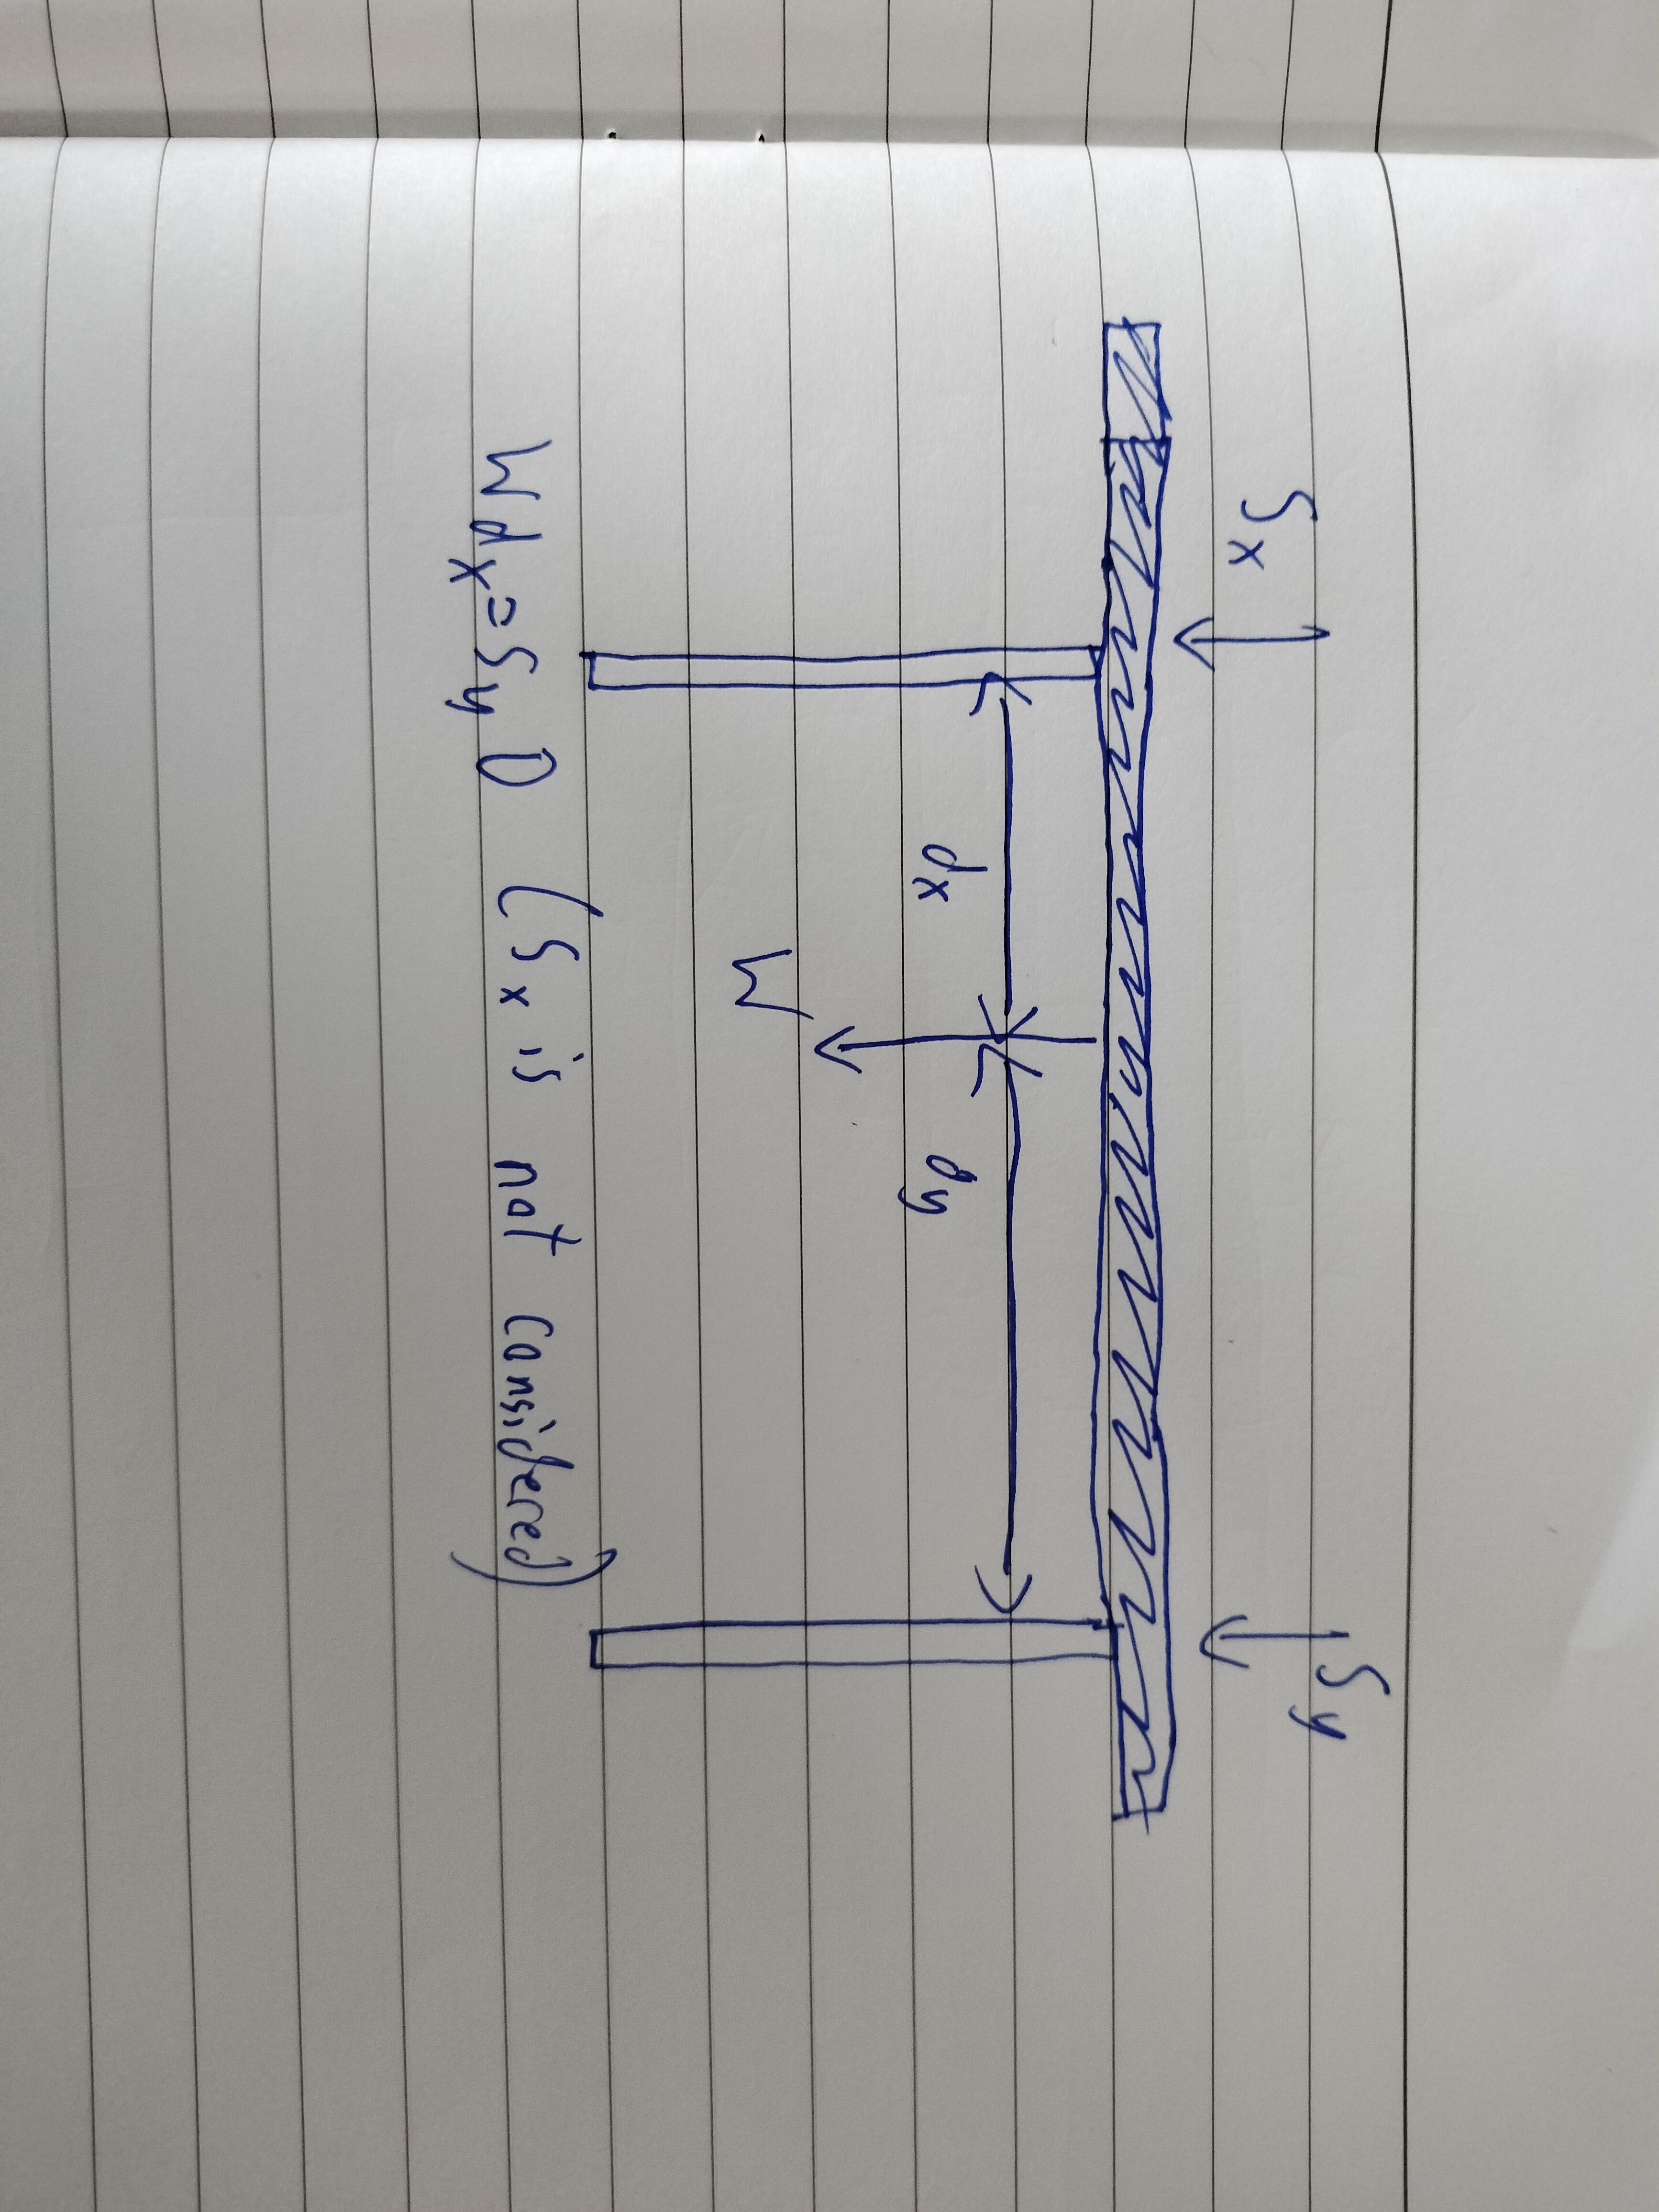 Sx
Sy
dx
dy
W
Wdx=SyD (Sx is not considered)